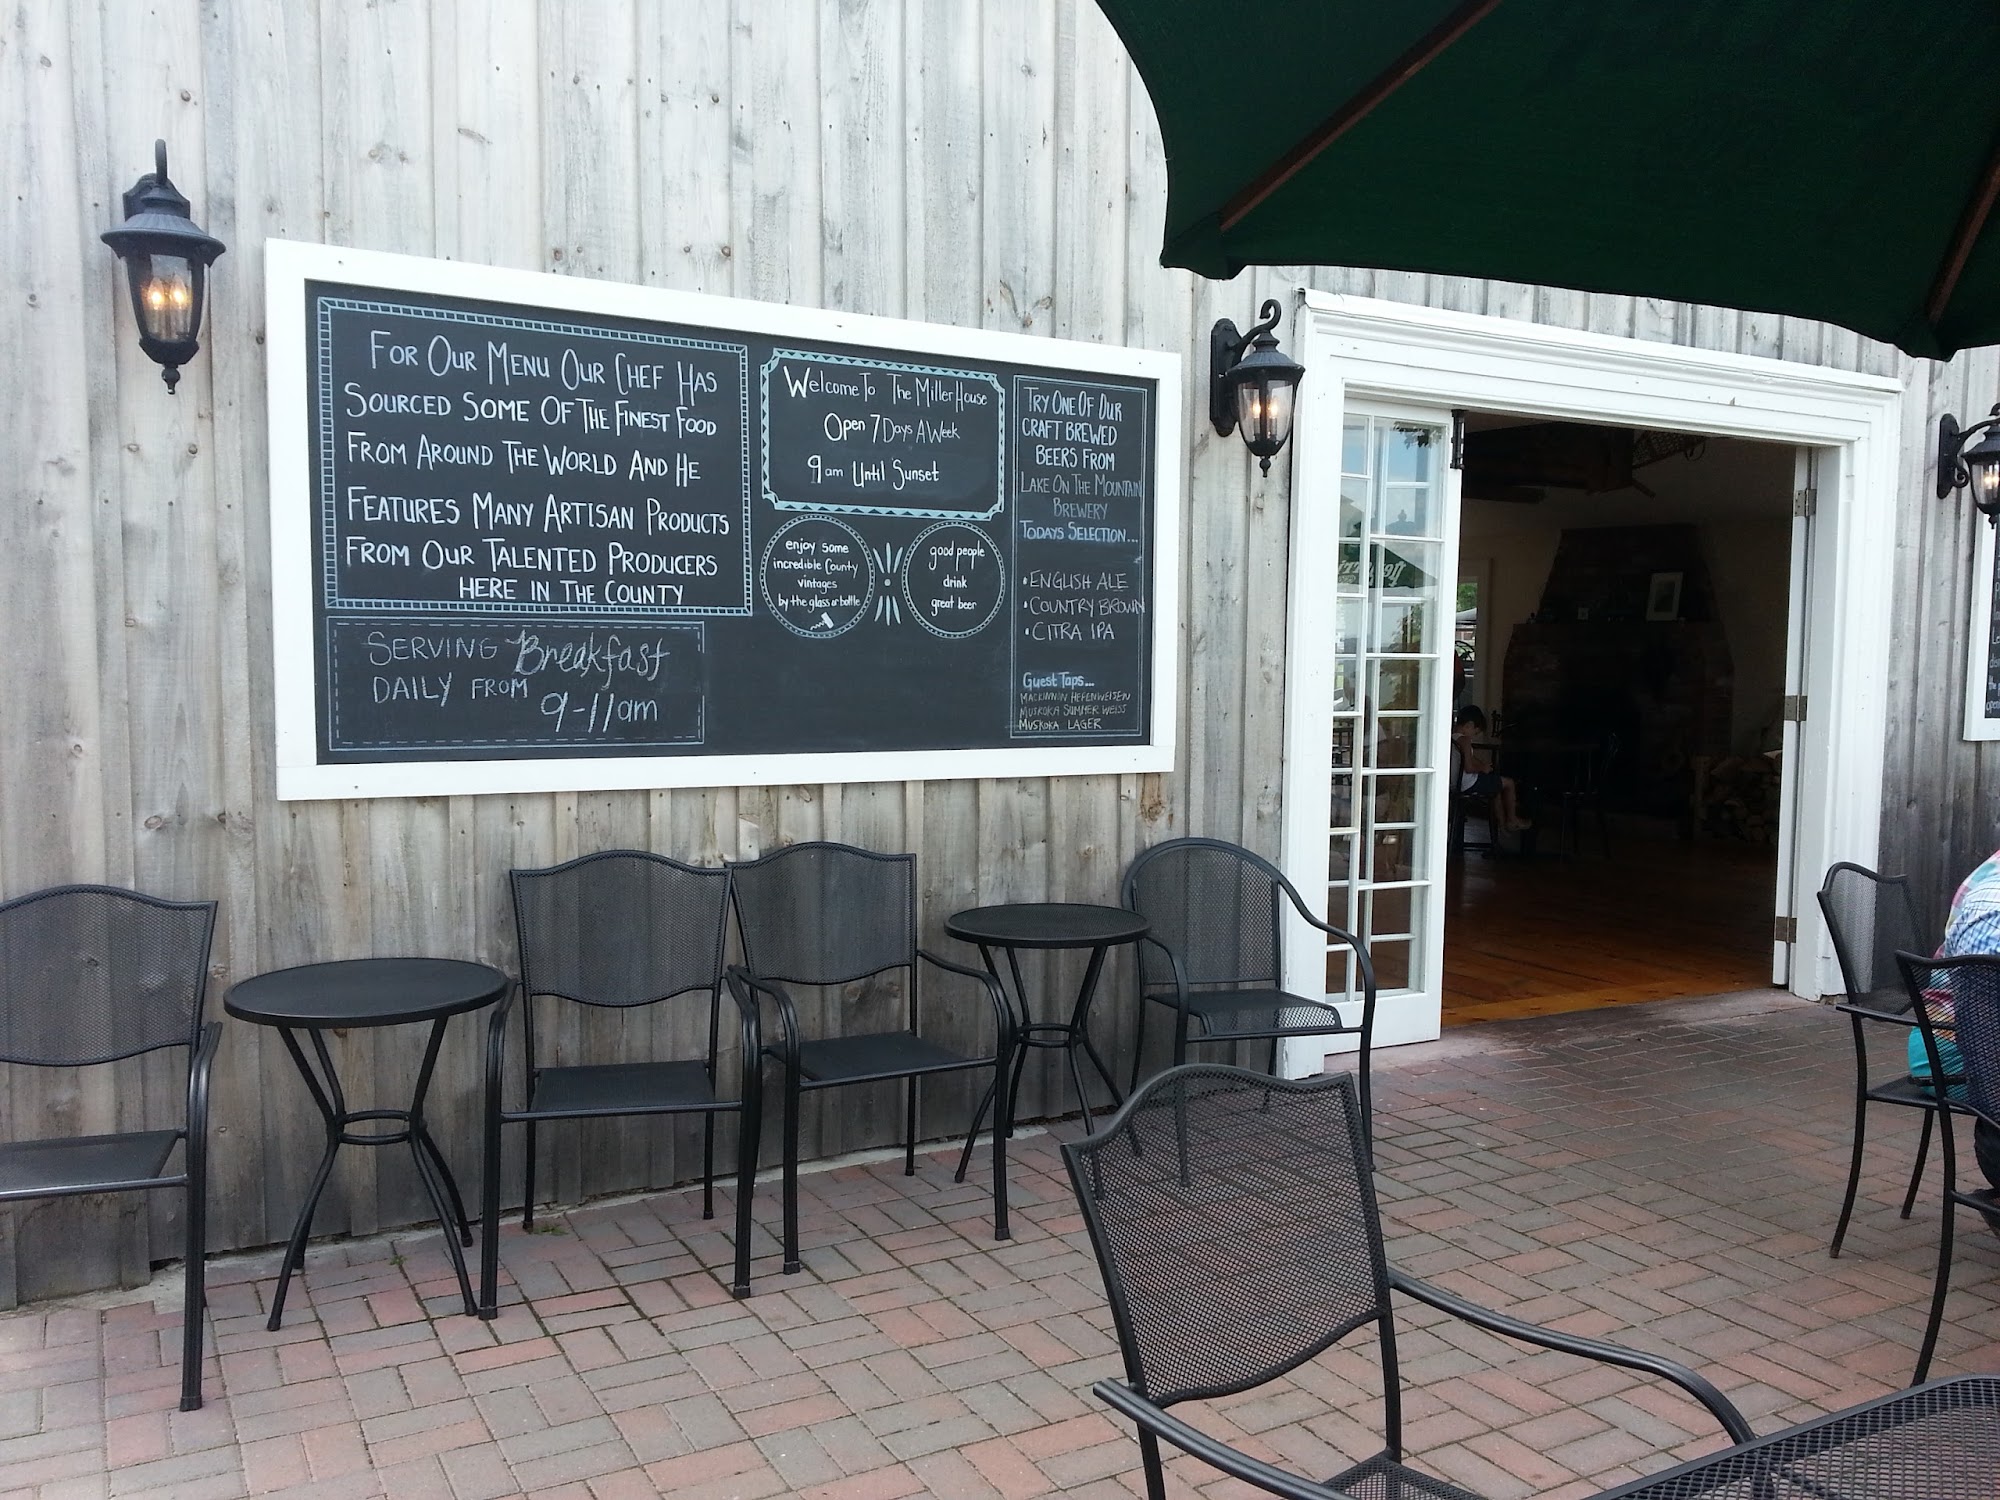 For Our Menu Our Chef Has
Sourced Some Of The Finest Food
From Around The World And He
Features Many Artisan Products
From Our Talented Producers
Here In The County
Serving Breakfast
Daily From
9-11am
Welcome To The Miller House
Open 7 Days A Week
9am Until Sunset
enjoy some
incredible County
vintages
by the glass or bottle
good people
drink
great beer
Try One Of Our
Craft Brewed
Beers From
Lake On The Mountain
Brewery
Todays Selection...
• English Ale
• Country Brown
• Citra IPA
Guest Taps...
Mackinnon Hefenweizen
Muskoka Summer Weiss
Muskoka Lager